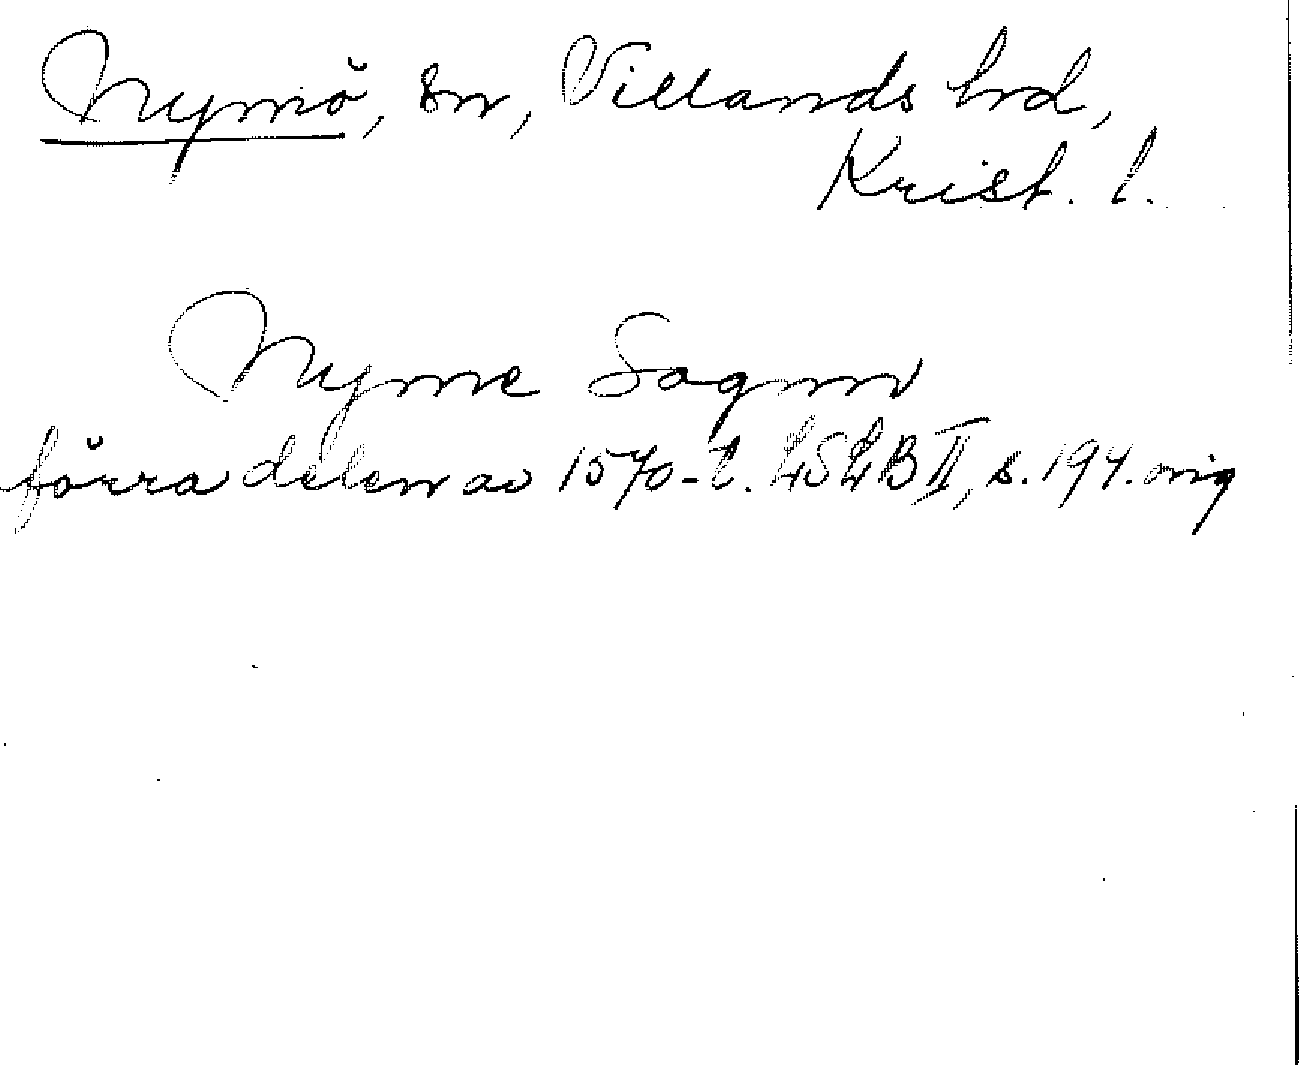 Nymö, sn, Villands hd,
Krist. l.
Nyme Sognn
förra delen av 1570-t. LSLB II, s. 194. orig